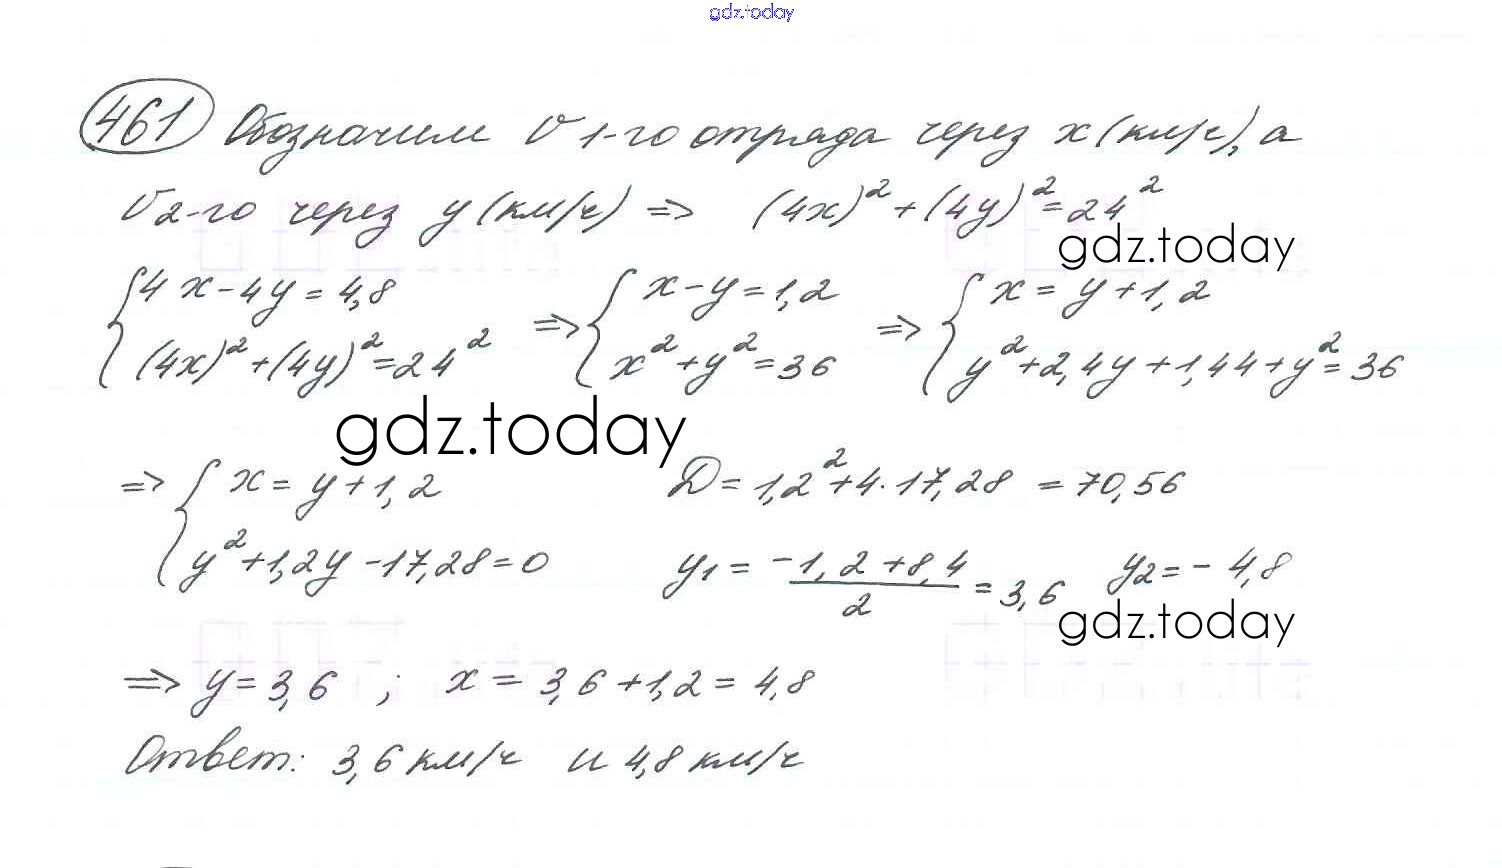 gdz.today
461 Обозначим V 1-го отряда через x (км/ч), а
V 2-го через y (км/ч) => (4x)² + (4y)² = 24²
gdz.today
{ 4x - 4y = 4,8 => { x - y = 1,2 => { x = y + 1,2
(4x)² + (4y)² = 24² x² + y² = 36 y² + 2,4y + 1,44 + y² = 36
gdz.today
=> { x = y + 1,2 D = 1,2² + 4·17,28 = 70,56
y² + 1,2y - 17,28 = 0 y₁ = (-1,2 + 8,4)/2 = 3,6 y₂ = -4,8
gdz.today
=> y = 3,6 ; x = 3,6 + 1,2 = 4,8
Ответ: 3,6 км/ч и 4,8 км/ч